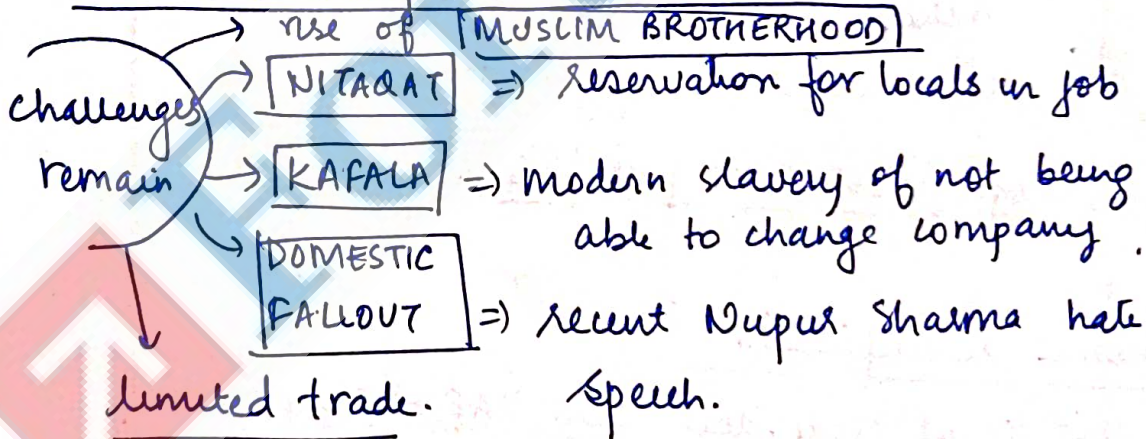 rise of MUSLIM BROTHERHOOD
challenges
remain
NITAQAT => reservation for locals in job
KAFALA => modern slavery of not being
able to change company.
DOMESTIC
FALLOUT => recent Nupur Sharma hate
speech.
limited trade.